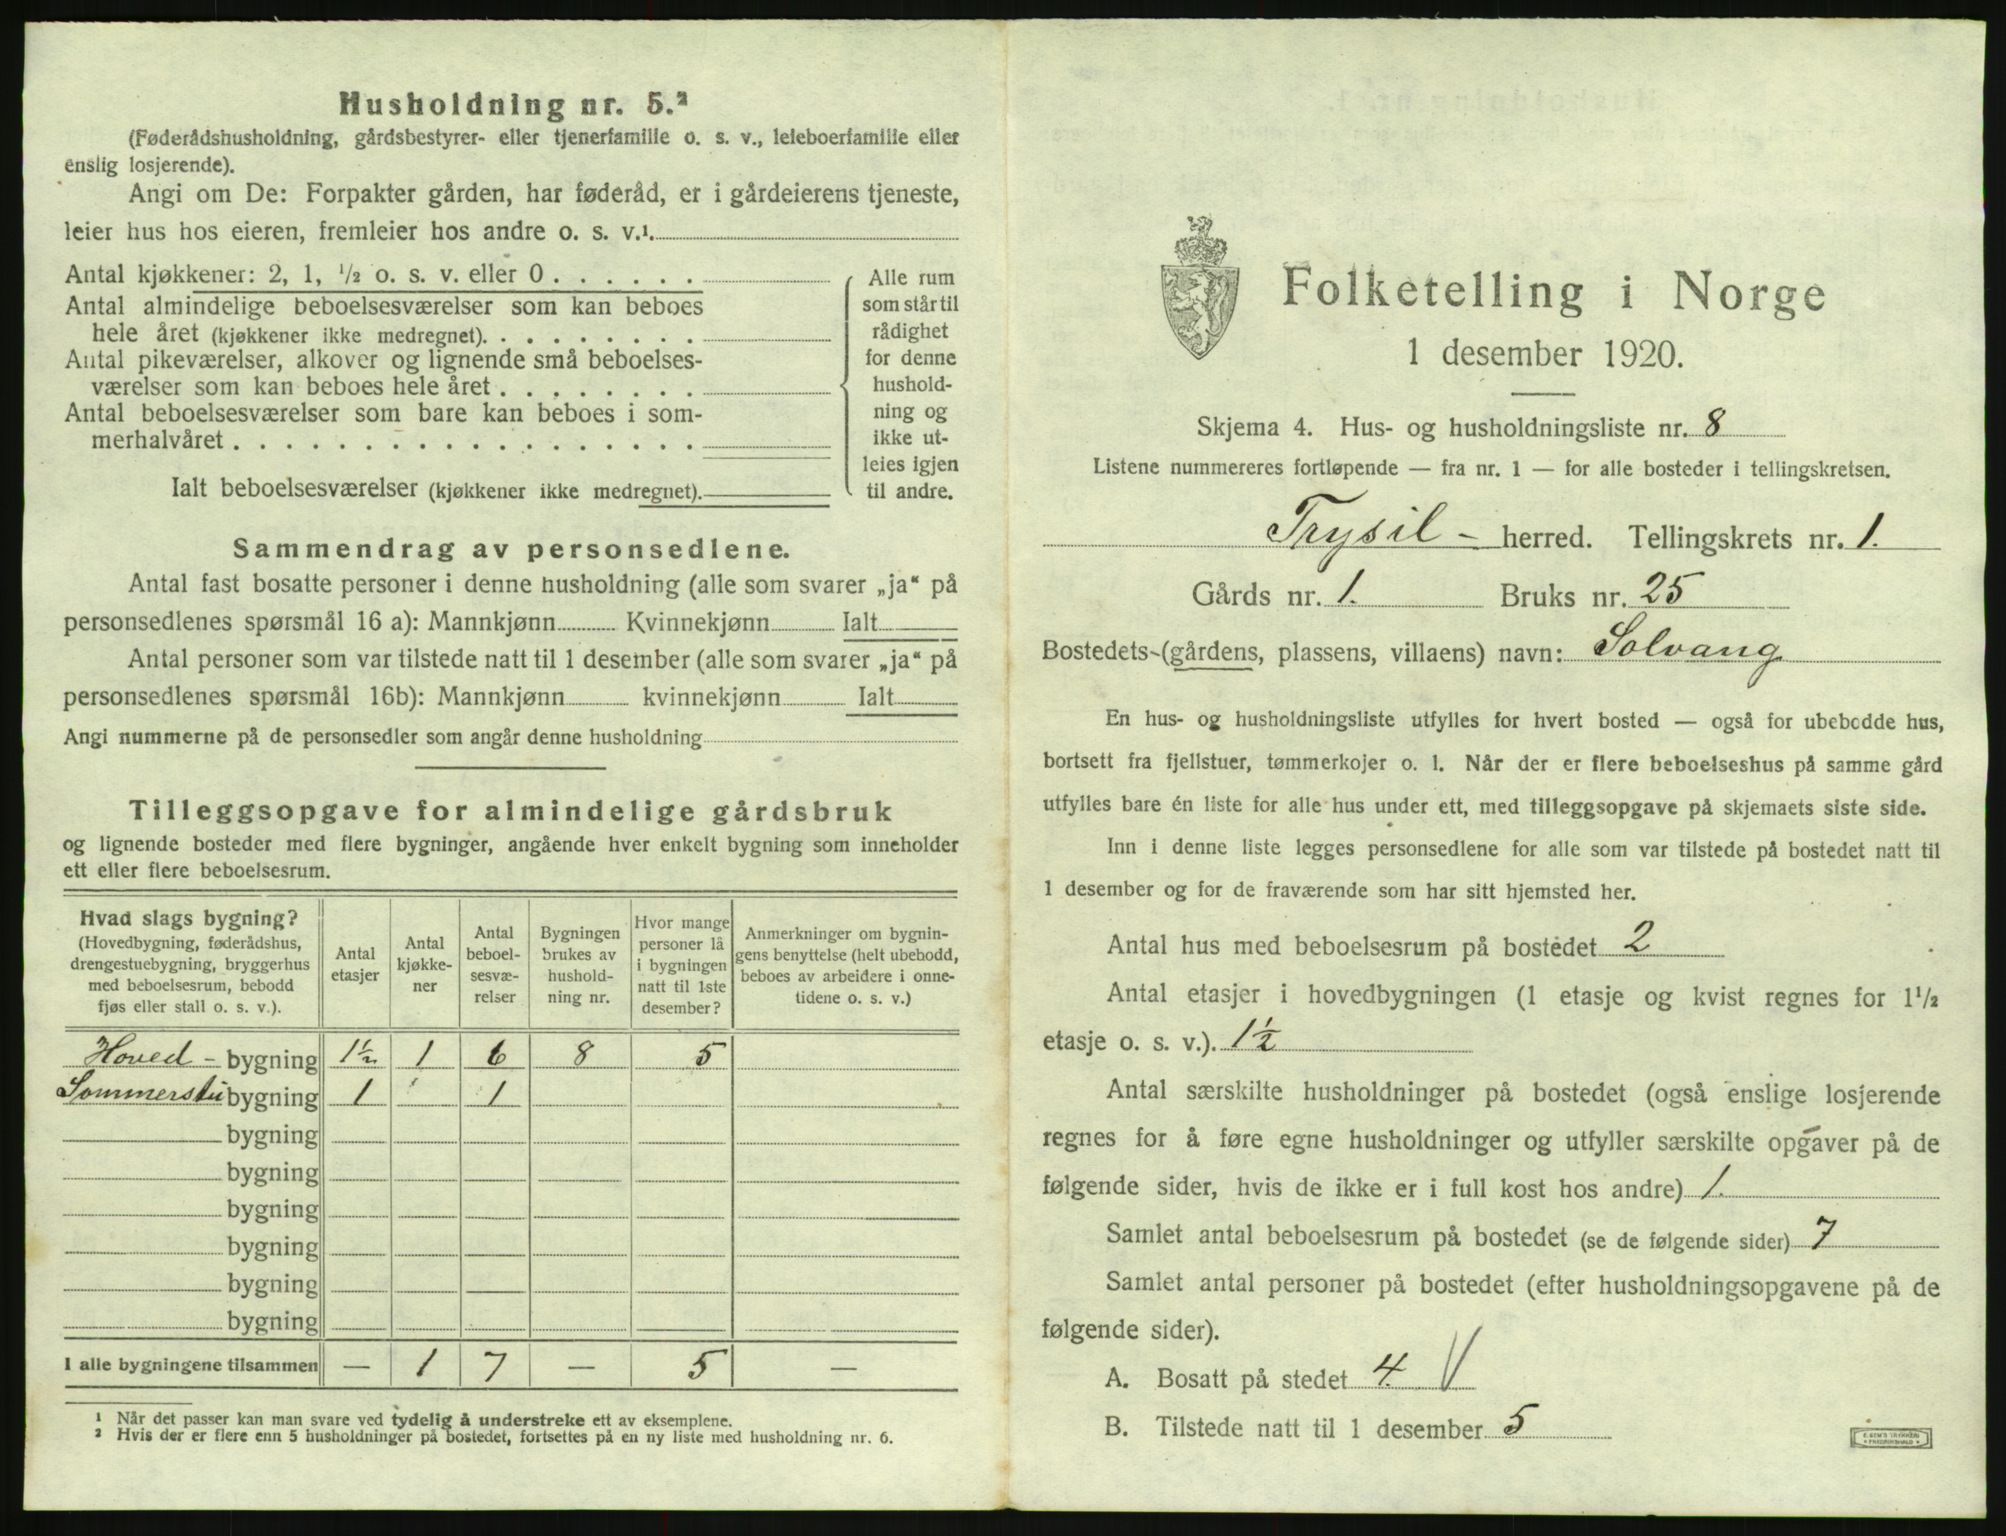 Husholdning nr. 5.²
(Føderådshusholdning, gårdsbestyrer- eller tjenerfamilie o. s. v., leieboerfamilie eller
enslig losjerende).
Angi om De: Forpakter gården, har føderåd, er i gårdeierens tjeneste,
leier hus hos eieren, fremleier hos andre o. s. v.¹.
Antal kjøkkener: 2, 1, ½ o. s. v. eller 0 . . . . . .
Antal almindelige beboelsesværelser som kan beboes
hele året (kjøkkener ikke medregnet). . . . . . . . .
Antal pikeværelser, alkover og lignende små beboelses-
værelser som kan beboes hele året . . . . . . . .
Antal beboelsesværelser som bare kan beboes i som-
merhalvåret . . . . . . . . . . . . . . . . . .
Ialt beboelsesværelser (kjøkkener ikke medregnet).
Alle rum
som står til
rådighet
for denne
hushold-
ning og
ikke ut-
leies igjen
til andre.
Sammendrag av personsedlene.
Antal fast bosatte personer i denne husholdning (alle som svarer „ja“ på
personsedlenes spørsmål 16 a): Mannkjønn Kvinnekjønn Ialt
Antal personer som var tilstede natt til 1 desember (alle som svarer „ja“ på
personsedlenes spørsmål 16b): Mannkjønn kvinnekjønn Ialt
Angi nummerne på de personsedler som angår denne husholdning
Tilleggsopgave for almindelige gårdsbruk
og lignende bosteder med flere bygninger, angående hver enkelt bygning som inneholder
ett eller flere beboelsesrum.
Hvad slags bygning?
(Hovedbygning, føderådshus,
drengestuebygning, bryggerhus
med beboelsesrum, bebodd
fjøs eller stall o. s. v.).
Antal
etasjer
Antal
kjøkke-
ner
Antal
beboel-
sesvæ-
relser
Bygningen
brukes av
hushold-
ning nr.
Hvor mange
personer lå
i bygningen
natt til 1ste
desember?
Anmerkninger om bygnin-
gens benyttelse (helt ubebodd,
beboes av arbeidere i onne-
tidene o. s. v.)
Hoved - bygning 1½ 1 6 8 5
Sommerstu bygning 1 1
bygning
bygning
bygning
bygning
bygning
bygning
I alle bygningene tilsammen — 1 7 — 5 —
¹ Når det passer kan man svare ved tydelig å understreke ett av eksemplene.
² Hvis der er flere enn 5 husholdninger på bostedet, fortsettes på en ny liste med husholdning nr. 6.
Folketelling i Norge
1 desember 1920.
Skjema 4. Hus- og husholdningsliste nr. 8
Listene nummereres fortløpende — fra nr. 1 — for alle bosteder i tellingskretsen.
Trysil - herred. Tellingskrets nr. 1.
Gårds nr. 1. Bruks nr. 25
Bostedets-(gårdens, plassens, villaens) navn: Solvang
En hus- og husholdningsliste utfylles for hvert bosted — også for ubebodde hus,
bortsett fra fjellstuer, tømmerkojer o. l. Når der er flere beboelseshus på samme gård
utfylles bare én liste for alle hus under ett, med tilleggsopgave på skjemaets siste side.
Inn i denne liste legges personsedlene for alle som var tilstede på bostedet natt til
1 desember og for de fraværende som har sitt hjemsted her.
Antal hus med beboelsesrum på bostedet 2
Antal etasjer i hovedbygningen (1 etasje og kvist regnes for 1½
etasje o. s. v.). 1½
Antal særskilte husholdninger på bostedet (også enslige losjerende
regnes for å føre egne husholdninger og utfyller særskilte opgaver på de
følgende sider, hvis de ikke er i full kost hos andre) 1.
Samlet antal beboelsesrum på bostedet (se de følgende sider) 7
Samlet antal personer på bostedet (efter husholdningsopgavene på de
følgende sider).
A. Bosatt på stedet 4.
B. Tilstede natt til 1 desember 5